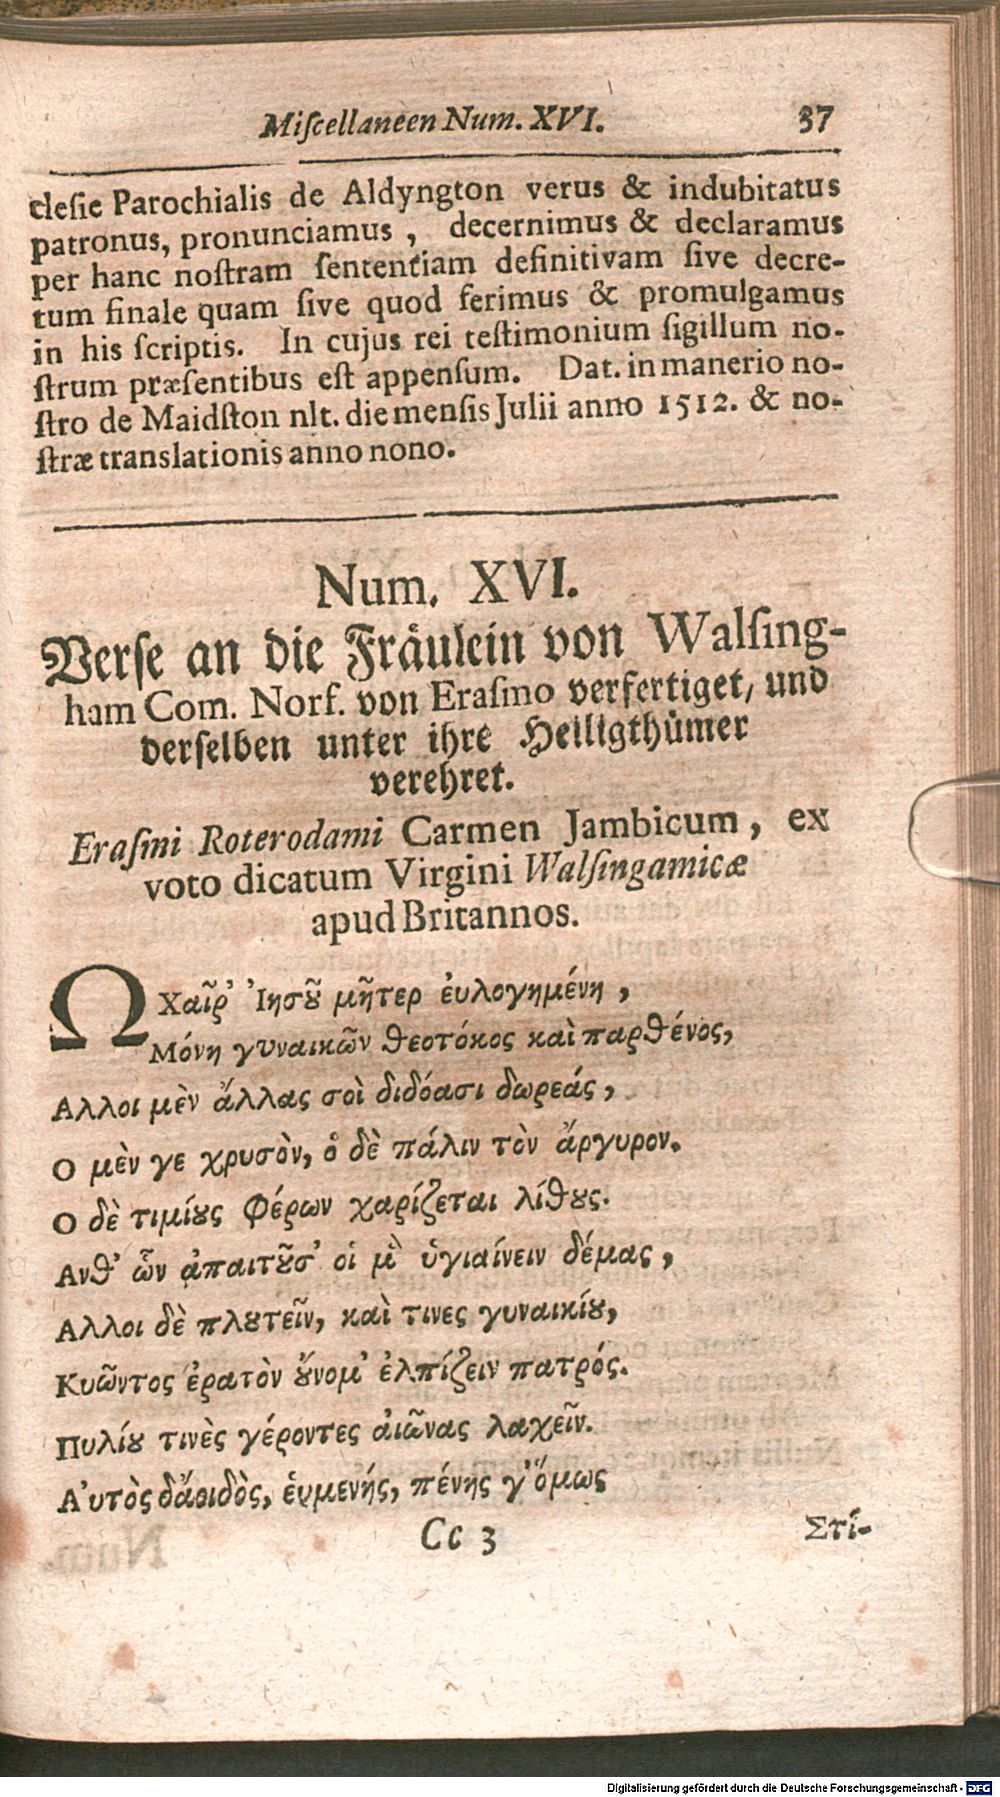 Miſcellaneen Num. XVI. 37
cleſie Parochialis de Aldyngton verus & indubitatus
patronus, pronunciamus , decernimus & declaramus
per hanc noſtram ſententiam definitivam ſive decre-
tum finale quam ſive quod ferimus & promulgamus
in his ſcriptis. In cujus rei teſtimonium ſigillum no-
ſtrum præſentibus eſt appenſum. Dat. in manerio no-
ſtro de Maidſton nlt. die menſis Julii anno 1512. & no-
ſtræ translationis anno nono.
Num. XVI.
Verſe an die Fräulein von Walſing-
ham Com. Norf. von Eraſmo verfertiget, und
derſelben unter ihre Heiligthümer
verehret.
Eraſmi Roterodami Carmen Jambicum, ex
voto dicatum Virgini Walſingamicæ
apud Britannos.
Ω Χαῖρ᾽ Ἰησȣ͂ μῆτερ ἐυλογημένη ,
Μόνη γυναικῶν θεοτόκος καὶ παρθένος,
Αλλοι μὲν ἄλλας σοὶ διδόασι δωρεάς ,
Ο μὲν γε χρυσὸν, ὁ δὲ πάλιν τὸν ἄργυρον.
Ο δὲ τιμίȣς φέρων χαρίζεται λίθȣς.
Ανθ᾽ ὧν ἀπαιτȣ͂σ᾽ οἱ μ ὑγιαίνειν δέμας ,
Αλλοι δὲ πλȣτεῖν, καὶ τινες γυναικίȣ,
Κυῶντος ἐρατὸν ȣ̓́νομ᾽ ἐλπίζειν πατρός.
Πυλίȣ τινὲς γέροντες ἀιῶνας λαχεῖν.
Α᾽υτὸς δἄοιδὸς, ἐυμενής, πένης γ᾽ὅμως
Cc 3 Στί-
Digitalisierung gefördert durch die Deutsche Forschungsgemeinschaft - DFG